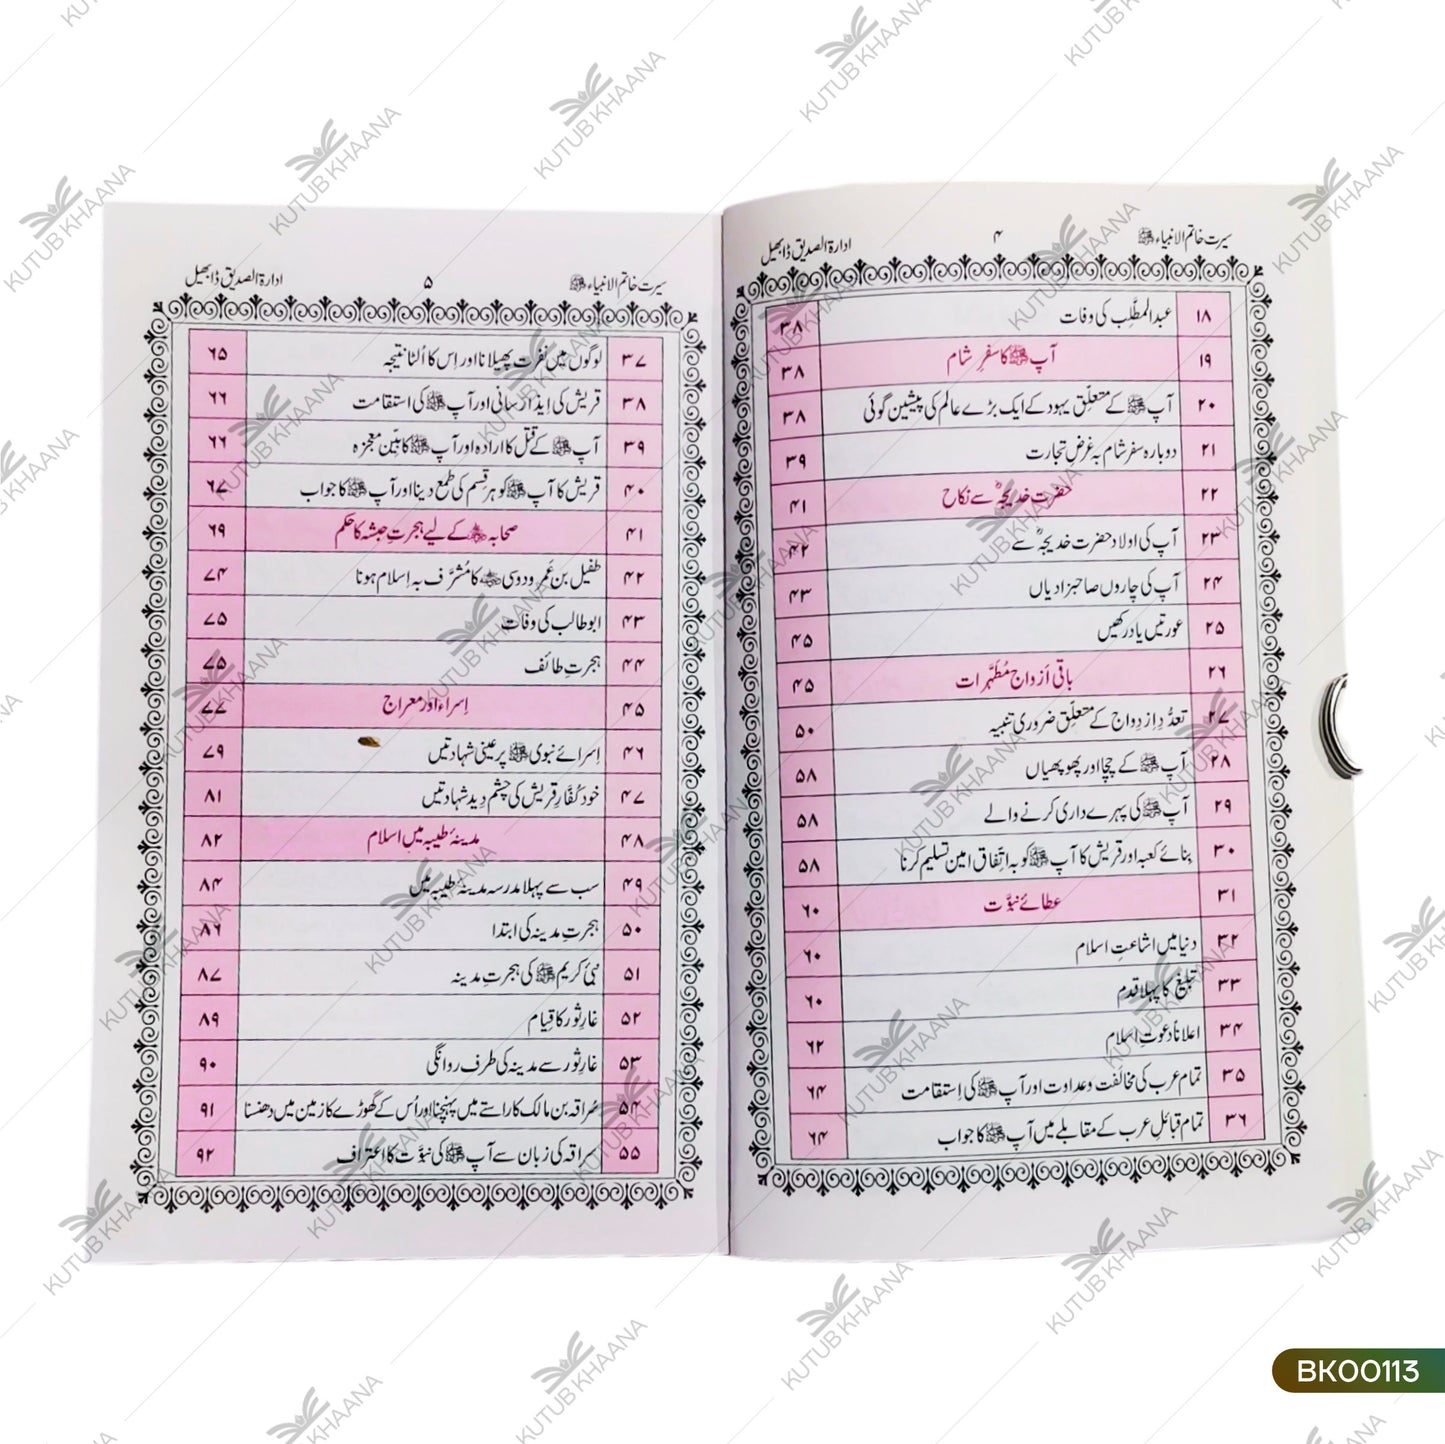 سیرت خاتم الانبیاء ﷺ ۴ ادارۃ الصدیق ڈابھیل
۱۸ عبدالمطلِب کی وفات ۳۸
۱۹ آپ ﷺ کا سفرِ شام ۳۸
۲۰ آپ ﷺ کے متعلِّق یہود کے ایک بڑے عالم کی پیشین گوئی ۳۸
۲۱ دوبارہ سفر شام بہ غرض تجارت ۳۹
۲۲ حضرت خدیجہؓ سے نکاح ۴۱
۲۳ آپ کی اولاد حضرت خدیجہؓ سے ۴۲
۲۴ آپ کی چاروں صاحبزادیاں ۴۳
۲۵ عورتیں یاد رکھیں ۴۵
۲۶ باقی اَزواجِ مُطَہَّرات ۴۵
۲۷ تعدُّدِ ازدِواج کے متعلِّق ضروری تنبیہ ۵۰
۲۸ آپ ﷺ کے چچا اور پھوپھیاں ۵۸
۲۹ آپ ﷺ کی پہرے داری کرنے والے ۵۸
۳۰ بنائے کعبہ اور قریش کا آپ ﷺ کو بہ اتِّفاق امین تسلیم کرنا ۵۸
۳۱ عطائے نبوَّت ۶۰
۳۲ دنیا میں اشاعتِ اسلام ۶۰
۳۳ تبلیغ کا پہلا قدم ۶۰
۳۴ اعلاناً دعوتِ اسلام ۶۲
۳۵ تمام عرب کی مخالفت وعداوت اور آپ ﷺ کی اِستقامت ۶۴
۳۶ تمام قبائلِ عرب کے مقابلے میں آپ ﷺ کا جواب ۶۴
سیرت خاتم الانبیاء ﷺ ۵ ادارۃ الصدیق ڈابھیل
۳۷ لوگوں میں نفرت پھیلانا اور اِس کا اُلٹا نتیجہ ۶۵
۳۸ قریش کی اِیذا رسانی اور آپ ﷺ کی استقامت ۶۶
۳۹ آپ ﷺ کے قتل کا ارادہ اور آپ ﷺ کا بیِّن معجزہ ۶۶
۴۰ قریش کا آپ ﷺ کو ہر قِسم کی طمع دینا اور آپ ﷺ کا جواب ۶۷
۴۱ صحابہ ﷺ کے لیے ہجرتِ حبشہ کا حکم ۶۹
۴۲ طفیل بن عَمرِو دوسی کا مُشرَّف بہ اِسلام ہونا ۷۴
۴۳ ابوطالب کی وفات ۷۵
۴۴ ہجرتِ طائف ۷۵
۴۵ اِسراء اور معراج ۷۷
۴۶ اِسرائے نبوی ﷺ پر عینی شہادتیں ۷۹
۴۷ خود کُفَّارِ قریش کی چشم دید شہادتیں ۸۱
۴۸ مدینۂ طیبہ میں اسلام ۸۲
۴۹ سب سے پہلا مدرسہ مدینۂ طیبہ میں ۸۴
۵۰ ہجرتِ مدینہ کی ابتدا ۸۶
۵۱ نبیٔ کریم ﷺ کی ہجرتِ مدینہ ۸۷
۵۲ غارِ ثور کا قِیام ۸۹
۵۳ غارِ ثور سے مدینہ کی طرف روانگی ۹۰
۵۴ سُراقہ بن مالک کا راستے میں پہنچنا اور اُس کے گھوڑے کا زمین میں دھنسنا ۹۱
۵۵ سراقہ کی زبان سے آپ ﷺ کی نبوَّت کا اعتراف ۹۲
KUTUB KHAANA
BK00113